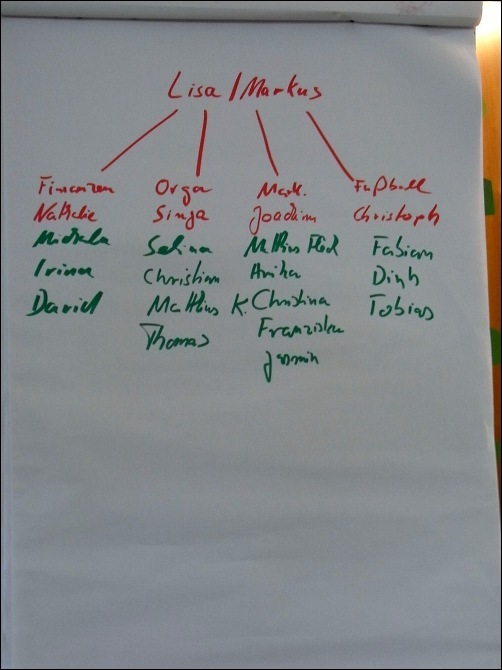 Lisa / Markus
Finanzen Orga Mark. Fußball
Nathalie Sinja Joachim Christoph
Michaela Selina Matthias Fabian
Irina Christian Anika Dinh
David Matthias K. Christina Tobias
Thomas Franziska
Jasmin